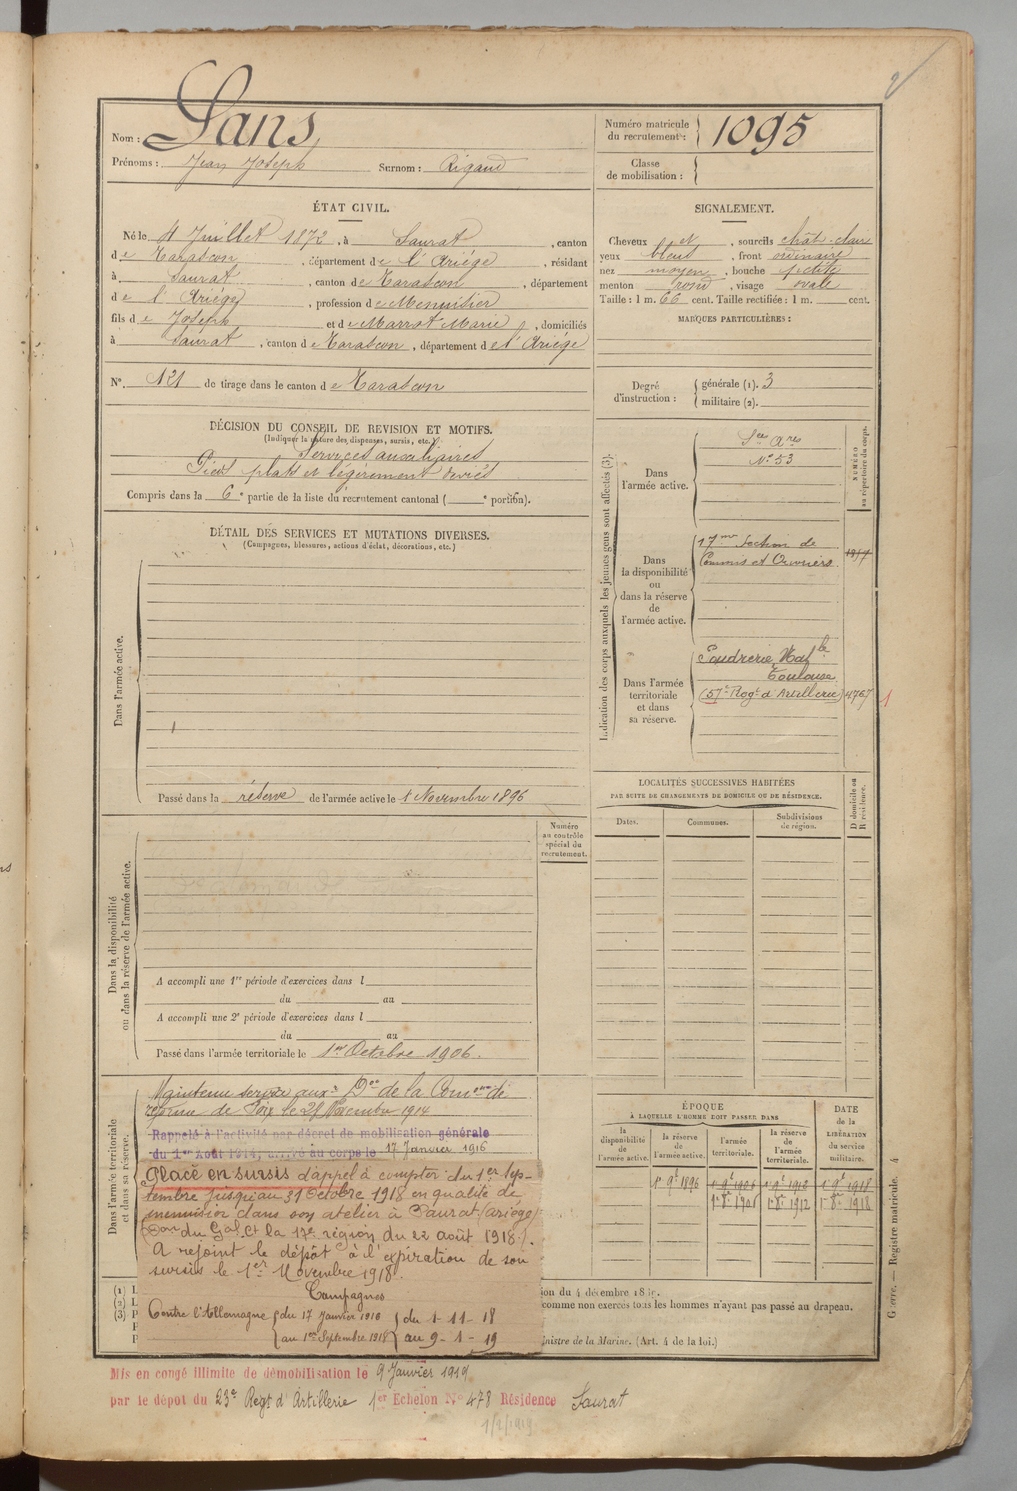 Nom : Sans
Prénoms : Jean Joseph Surnom : Rigaud
Numéro matricule du recrutement : 1095
Classe de mobilisation :
ÉTAT CIVIL.
Né le 4 Juillet 1872, à Saurat, canton
de Tarascon, département de l'Ariège, résidant
à Saurat, canton de Tarascon, département
de l'Ariège, profession de Menuisier
fils de Joseph et de Marrot Marie, domiciliés
à Saurat, canton de Tarascon, département de l'Ariège
N°. 121 de tirage dans le canton de Tarascon
SIGNALEMENT.
Cheveux et, sourcils chât-clair
yeux bleus, front ordinaire
nez moyen, bouche petite
menton rond, visage ovale
Taille : 1 m. 66 cent. Taille rectifiée : 1 m. cent.
MARQUES PARTICULIÈRES :
Degré d'instruction : générale (1). 3
militaire (2).
DÉCISION DU CONSEIL DE REVISION ET MOTIFS.
(Indiquer la nature des dispenses, sursis, etc.)
Services auxiliaires
Pieds plats et légèrement deviés
Compris dans la 6e partie de la liste du recrutement cantonal ( e portion).
DÉTAIL DES SERVICES ET MUTATIONS DIVERSES.
(Campagnes, blessures, actions d'éclat, décorations, etc.)
Dans l'armée active.
Passé dans la réserve de l'armée active le 1 Novembre 1896
Indication des corps auxquels les jeunes gens sont affectés (3).
NUMÉRO au répertoire du corps.
Dans l'armée active.
Sces Ares
N° 53
Dans la disponibilité ou dans la réserve de l'armée active.
17me Section de
Commis et Ouvriers
Dans l'armée territoriale et dans sa réserve.
Poudrerie Natle
Toulouse
(57e Régt d'Artillerie) 4767
1
LOCALITÉS SUCCESSIVES HABITÉES
PAR SUITE DE CHANGEMENTS DE DOMICILE OU DE RÉSIDENCE.
Dates. Communes. Subdivisions de région. D domicile ou R résidence.
Numéro au contrôle spécial du recrutement.
Dans la disponibilité ou dans la réserve de l'armée active.
A accompli une 1re période d'exercices dans l
du au
A accompli une 2e période d'exercices dans l
du au
Passé dans l'armée territoriale le 1er Octobre 1906.
Dans l'armée territoriale et dans sa réserve.
Maintenu service auxre Don de la Comon de
réforme de Foix le 21 Novembre 1914
Rappelé à l'activité par décret de mobilisation générale
du 1er Août 1914, arrivé au corps le 17 Janvier 1916
Placé en sursis d'appel à compter du 1er Sep-
tembre jusqu'au 31 Octobre 1918 en qualité de
menuisier dans son atelier à Saurat (Ariège)
(Don du Gal Ct la 17e région du 22 août 1918).
A rejoint le dépôt à l'expiration de son
sursis le 1er Novembre 1918.
Campagnes
Contre l'Allemagne du 17 Janvier 1916 du 1-11-18
au 1er Septembre 1918 au 9-1-19
ÉPOQUE
À LAQUELLE L'HOMME DOIT PASSER DANS
la disponibilité de l'armée active. la réserve de l'armée active. l'armée territoriale. la réserve de l'armée territoriale.
DATE de la LIBÉRATION du service militaire.
ion du 4 décembre 18
comme non exercés tous les hommes n'ayant pas passé au drapeau.
inistre de la Marine. (Art. 4 de la loi.)
Guerre. — Registre matricule. 4
Mis en congé illimité de démobilisation le 9 Janvier 1919
par le dépôt du 23e Regt d'Artillerie 1er Echelon N° 478 Résidence Saurat